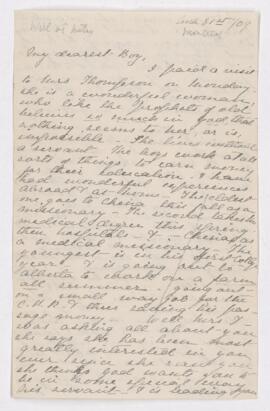 Monday
My dearest Boy,
I paid a visit
to Mrs Thompson on Monday.
she is a wonderful woman,
who like the prophets of old
believes so much in God that
nothing seems to her, or is,
impossible. She lives without
a servant. The boys cook & do all
sorts of things to earn money
for their education. & have
had wonderful experiences
abroad & at home. The eldest
one goes to China this fall as a
missionary. The second takes his
medical degree this Spring
then hospitals & China as
a medical missionary. The
youngest is in his first College
year & is going next to
Alberta to a farm
all summer. going out
on a small way job for the
C.P.R. & thus
money. Well Mrs T
was asking all about you
she says she has been most
greatly interested in you
ever since she saw you
she thinks God wants you to
be in some special way
his servant. & is